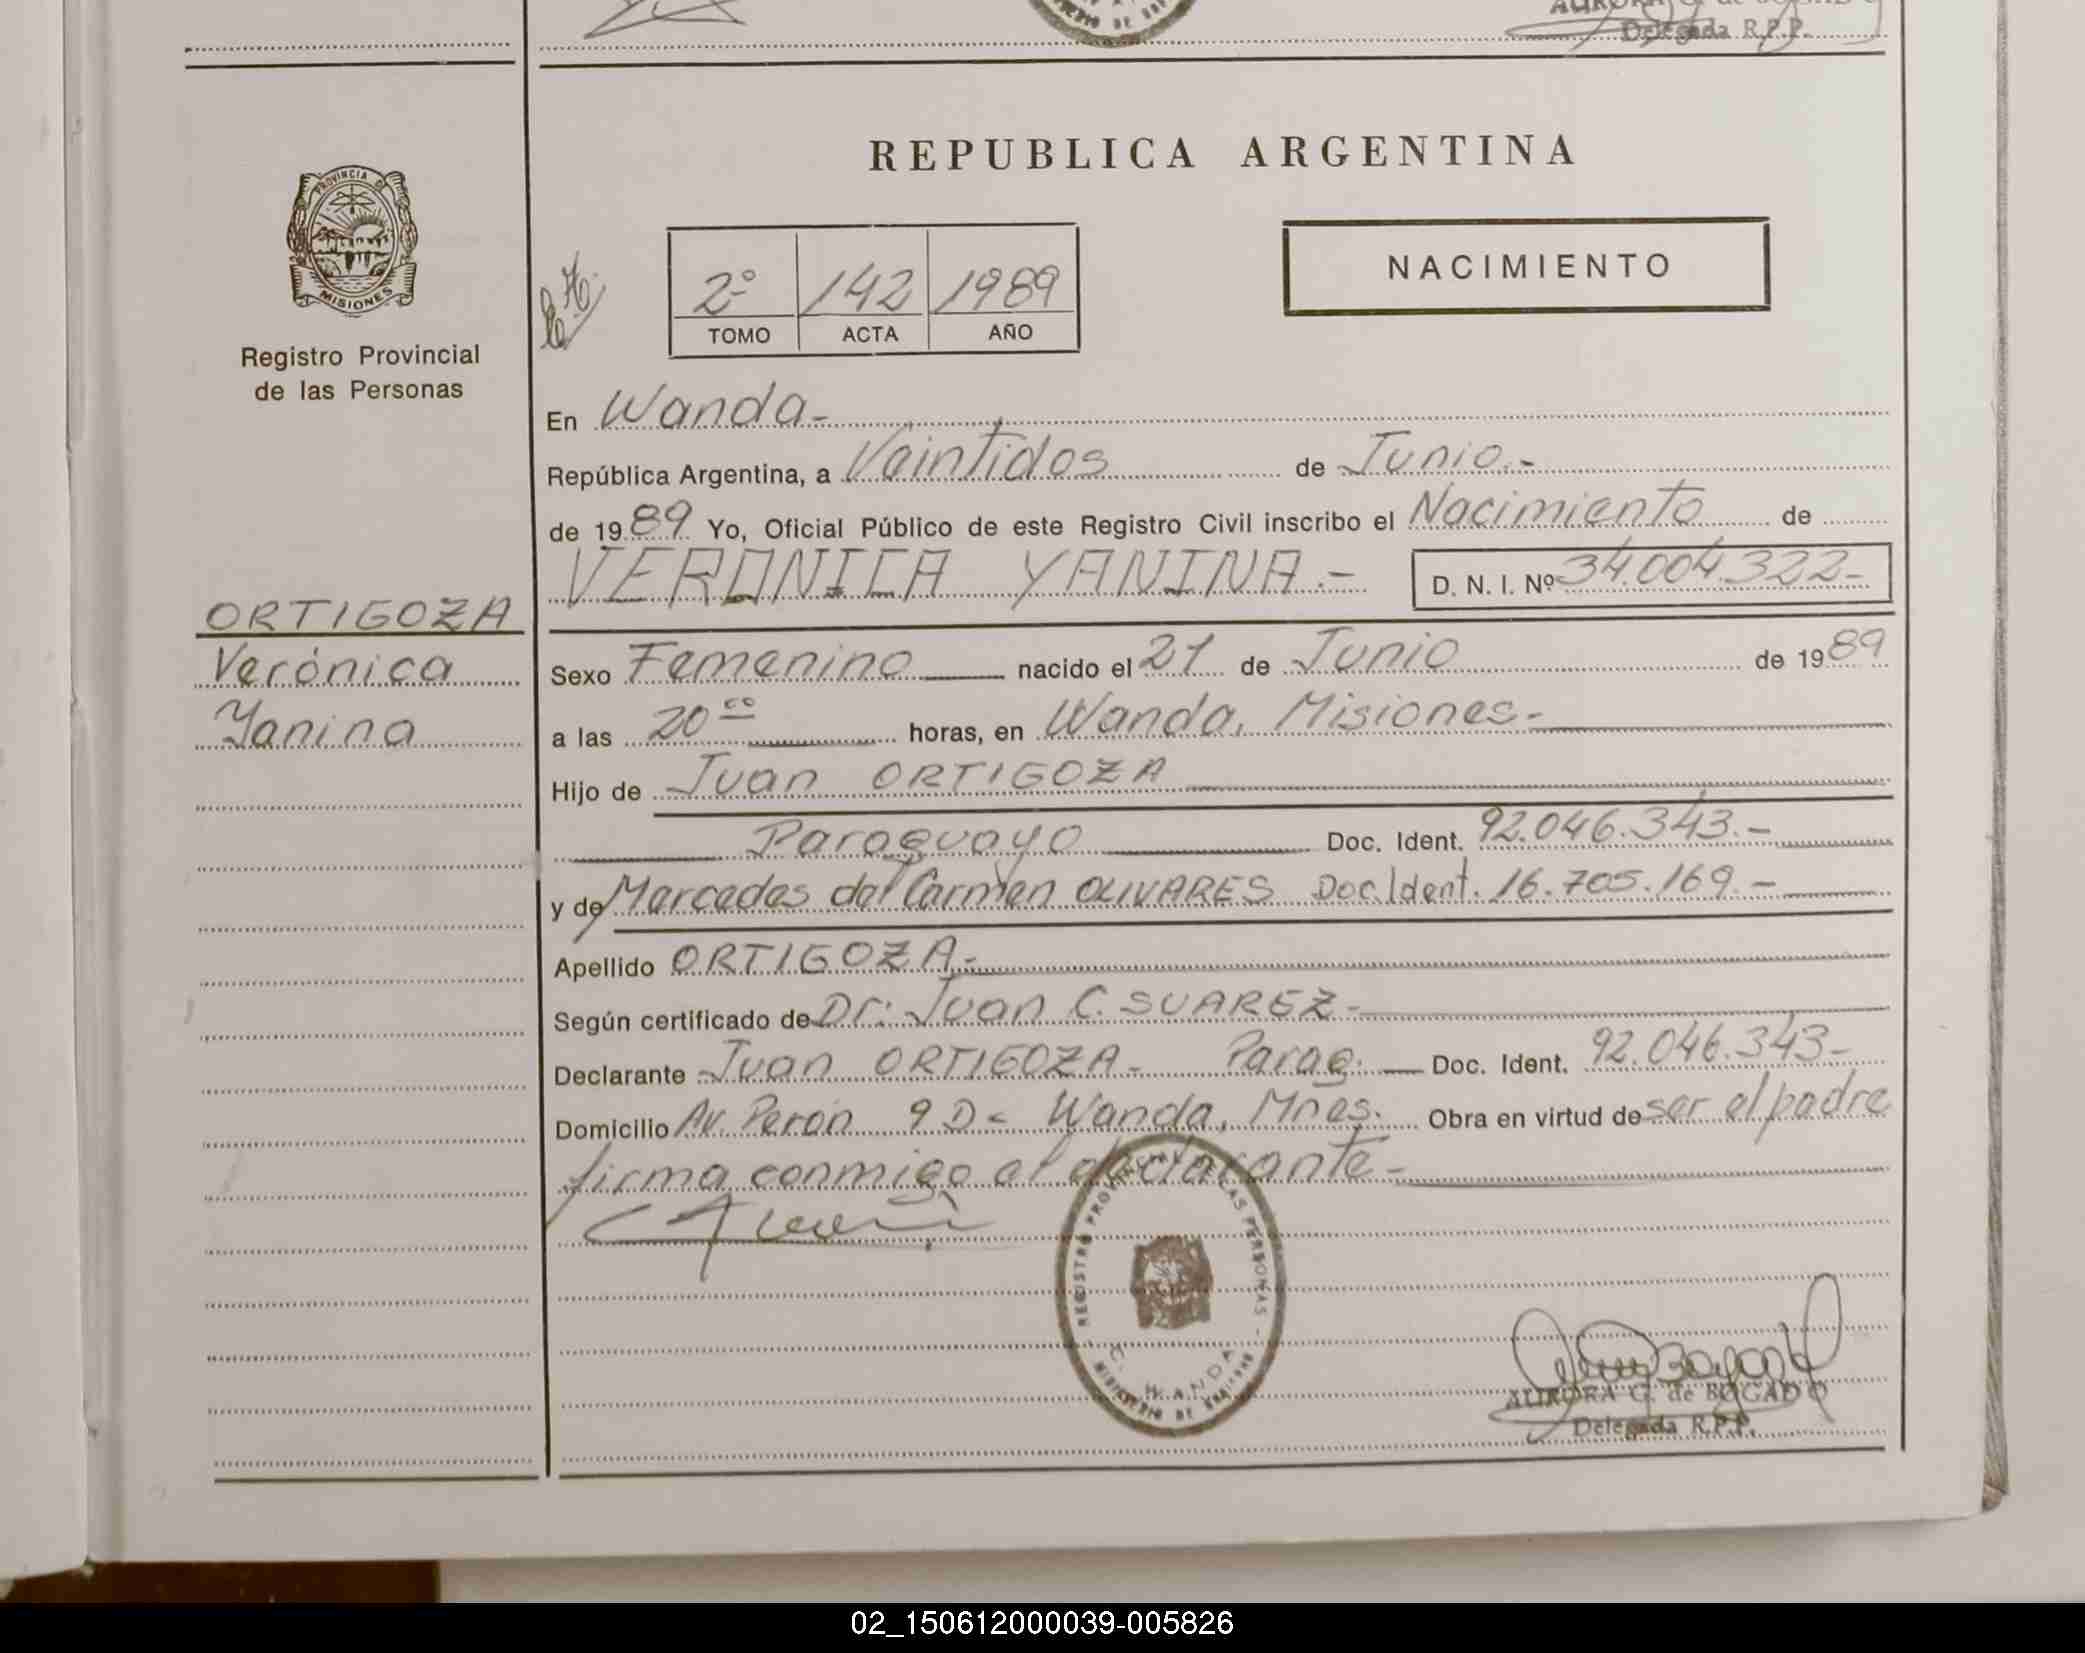 AURORA G. de BOGADO
Delegada R.P.P.
REPUBLICA ARGENTINA
PROVINCIA DE
MISIONES
Registro Provincial
de las Personas
2º 142 1989
TOMO ACTA AÑO
NACIMIENTO
En Wanda.-
República Argentina, a Veintidos de Junio.-
de 1989 Yo, Oficial Público de este Registro Civil inscribo el Nacimiento de
VERONICA YANINA.- D. N. I. Nº 34.004.322-
ORTIGOZA
Verónica
Yanina
Sexo Femenino nacido el 21 de Junio de 1989
a las 20 oo horas, en Wanda, Misiones-
Hijo de Juan ORTIGOZA
Paraguayo Doc. Ident. 92.046.343.-
y de Mercedes del Carmen OLIVARES Doc. Ident. 16.705.169.-
Apellido ORTIGOZA.-
Según certificado de Dr: Juan C. SUAREZ-
Declarante Juan ORTIGOZA- Parag. Doc. Ident. 92.046.343-
Domicilio Av. Perón 9 D- Wanda, Mnes. Obra en virtud de ser el padre
firma conmigo el declarante-
REGISTRO PROVINCIAL DE LAS PERSONAS
WANDA
MINISTERIO DE GOBIERNO
AURORA G. de BOGADO
Delegada R.P.P.
02_150612000039-005826